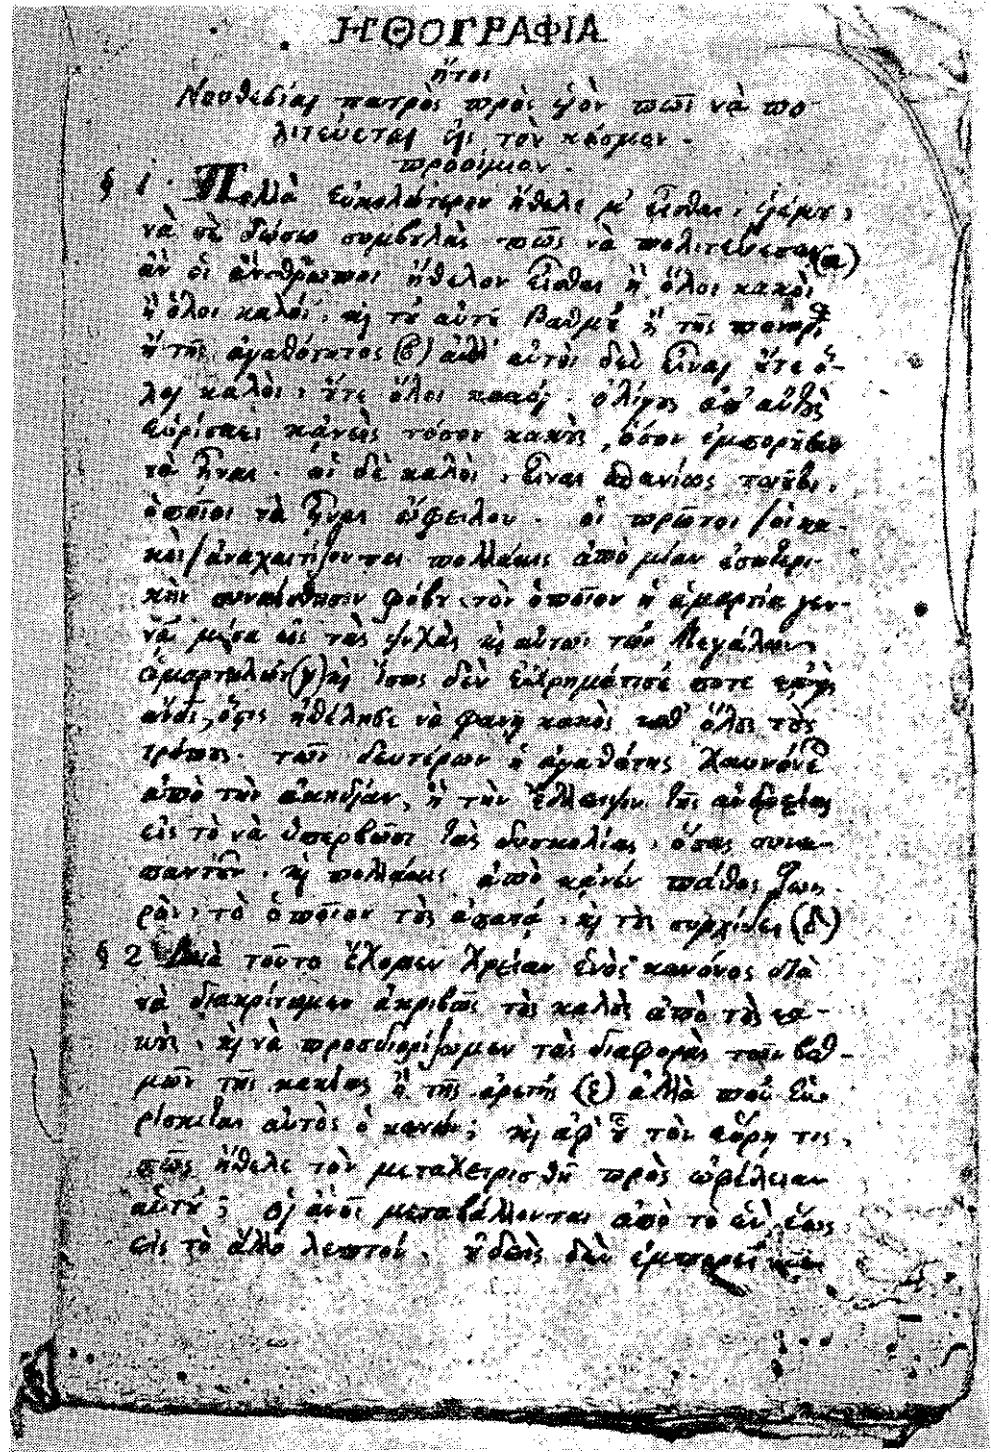 ΗΘΟΓΡΑΦΙΑ
ἤτοι
Νουθεσίαι πατρὸς πρὸς ὑιὸν πῶς νὰ πο-
λιτεύεται εἰς τὸν κόσμον.
προοίμιον.
§ 1. Πολλὰ εὐκολώτερον ἤθελε μ' εἶσθαι, υἱέ μου,
νὰ σὲ δώσω συμβουλὰς πῶς νὰ πολιτεύεσαι (α)
ἂν οἱ ἄνθρωποι ἤθελον εἶσθαι ἢ ὅλοι κακοὶ
ἢ ὅλοι καλοί, καὶ τοῦ αὐτοῦ βαθμοῦ ἢ τῆς πονηρίας
ἢ τῆς ἀγαθότητος (β) ἀλλ' αὐτοὶ δὲν εἶναι οὔτε ὅ-
λοι καλοὶ, οὔτε ὅλοι κακοί. ὀλίγους ἀπ' αὐτοὺς
εὑρίσκει κᾀνεὶς τόσον κακοὺς, ὅσον ἐμποροῦσαν
νὰ ἦναι. οἱ δὲ καλοὶ, εἶναι σπανίως τοιοῦτοι,
ὁποῖοι νὰ ἦναι ὤφειλον. οἱ πρῶτοι /οἱ κα-
κοὶ/ ἀναχαιτίζονται πολλάκις ἀπὸ μίαν ἐσωτερι-
κὴν συναίσθησιν φόβου, τὸν ὁποῖον ἡ ἁμαρτία γεν-
νᾷ μέσα εἰς τὰς ψυχὰς καὶ αὐτῶν τῶν μεγάλων
ἁμαρτωλῶν (γ) καὶ ἴσως δὲν ἐχρημάτισέ ποτε
ὅστις ἠθέλησε νὰ φανῇ κακὸς καθ' ὅλους τοὺς
τρόπους. τῶν δευτέρων ἡ ἀγαθότης χαυνοῦται
ἀπὸ τὴν ἀκηδίαν, ἢ τὴν ἔλλειψιν τῆς ἀνδρείας
εἰς τὸ νὰ ὑπερβῶσι τὰς δυσκολίας, ὅσας συνα-
παντοῦν. καὶ πολλάκις ἀπὸ κᾀνέν πάθος ζωη-
ρὸν, τὸ ὁποῖον τοὺς ἀπατᾷ, καὶ τοὺς συγχίζει (δ)
§ 2 Διὰ τοῦτο ἔχομεν χρείαν ἑνὸς κανόνος διὰ
νὰ διακρίνωμεν ἀκριβῶς τοὺς καλοὺς ἀπὸ τοὺς κα-
κοὺς, καὶ νὰ προσδιορίζωμεν τὰς διαφορὰς τῶν βαθ-
μῶν τῆς κακίας ἢ τῆς ἀρετῆς (ε) ἀλλὰ ποῦ εὑ-
ρίσκεται αὐτὸς ὁ κανών; καὶ ἀφ' οὗ τὸν εὕρῃ τις,
πῶς ἤθελε τὸν μεταχειρισθῆ πρὸς ὠφέλειαν
αὑτοῦ; οἱ ἄνοι μεταβάλλονται ἀπὸ τὸ ἓν ἕως
εἰς τὸ ἄλλο λεπτόν. οὐδεὶς δὲν ἐμπορεῖ